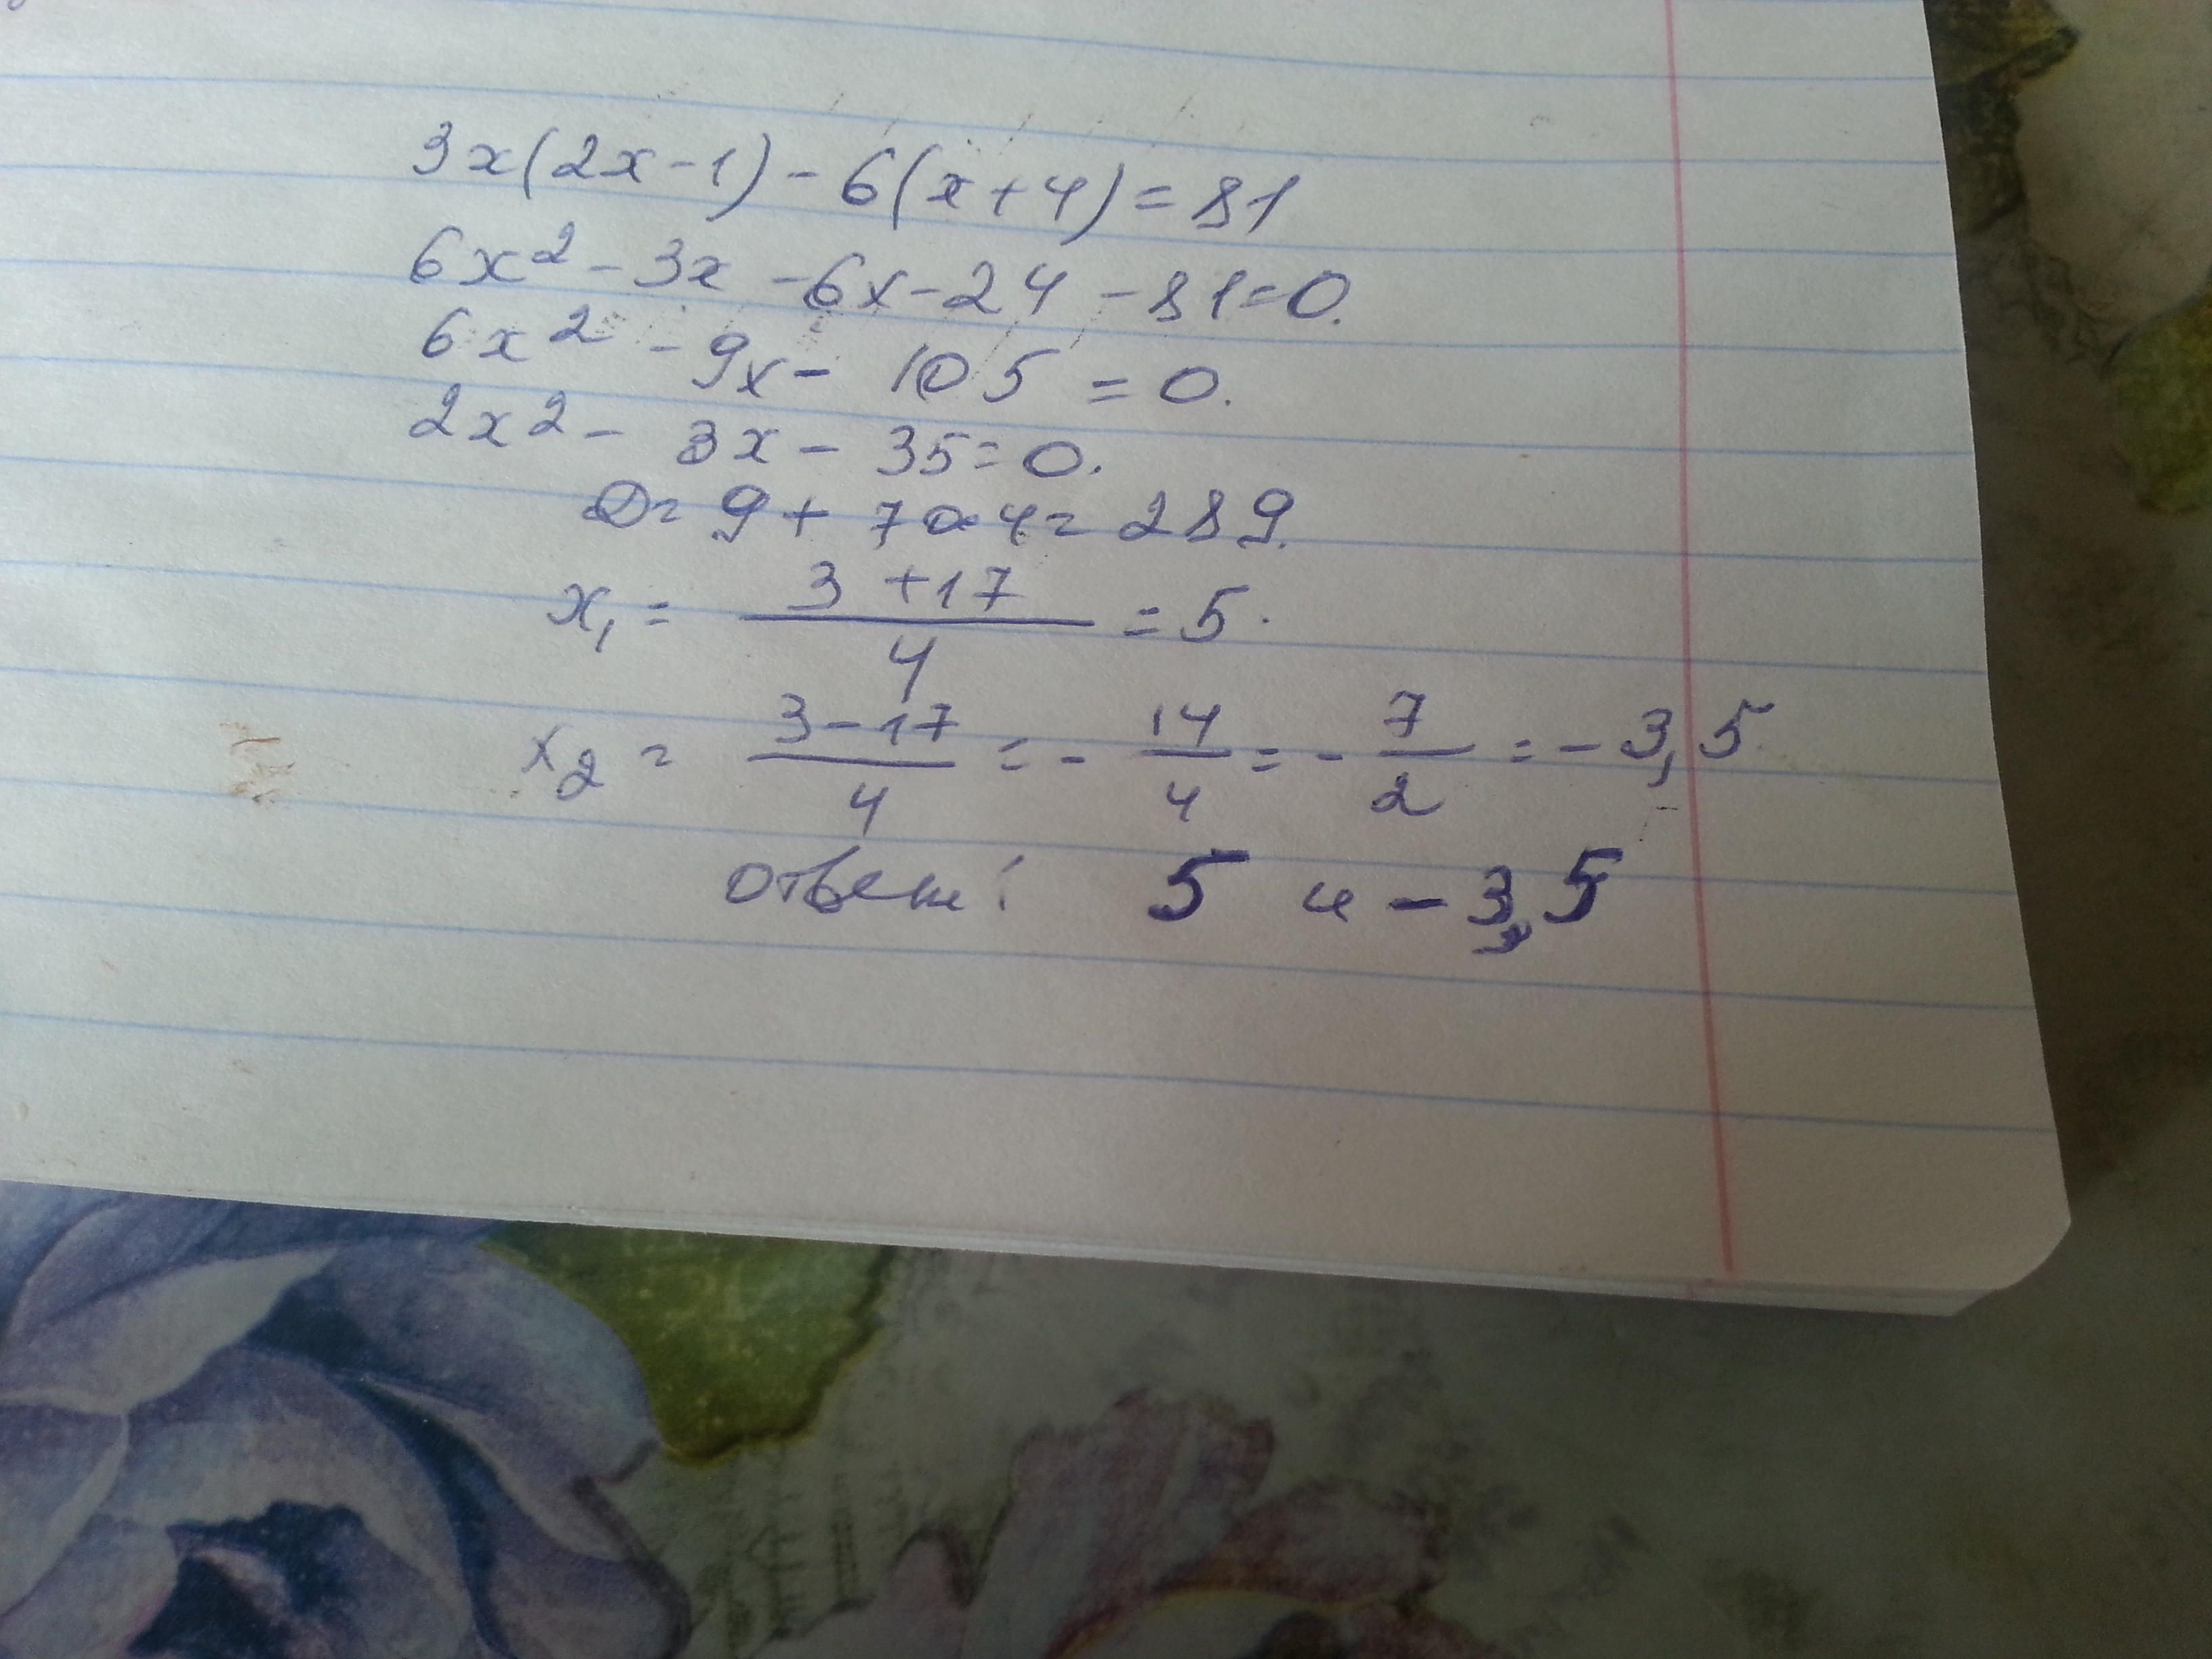 3x(2x-1)-6(x+4)=81
6x²-3x-6x-24-81=0.
6x²-9x-105=0.
2x²-3x-35=0.
D=9+70·4=289.
x₁=(3+17)/4=5.
x₂=(3-17)/4=-14/4=-7/2=-3,5.
Ответ: 5 и -3,5